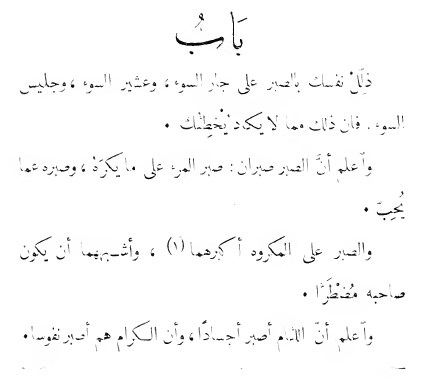 بَابُ
ذلِّلْ نفسك بالصبر على جار السوء، وعشير السوء، وجليس
السوء. فان ذلك مما لا يكاد يُخطِئك.
واعلم أنَّ الصبر صبران: صبر المرء على ما يكرَهُ، وصبره عما
يُحِبّ.
والصبر على المكروه أكبرهما (١)، وأشبههما أن يكون
صاحبه مُضْطَرًا.
واعلم أنّ اللئام أصبر أجسادًا، وأن الكرام هم أصبر نفوسا.